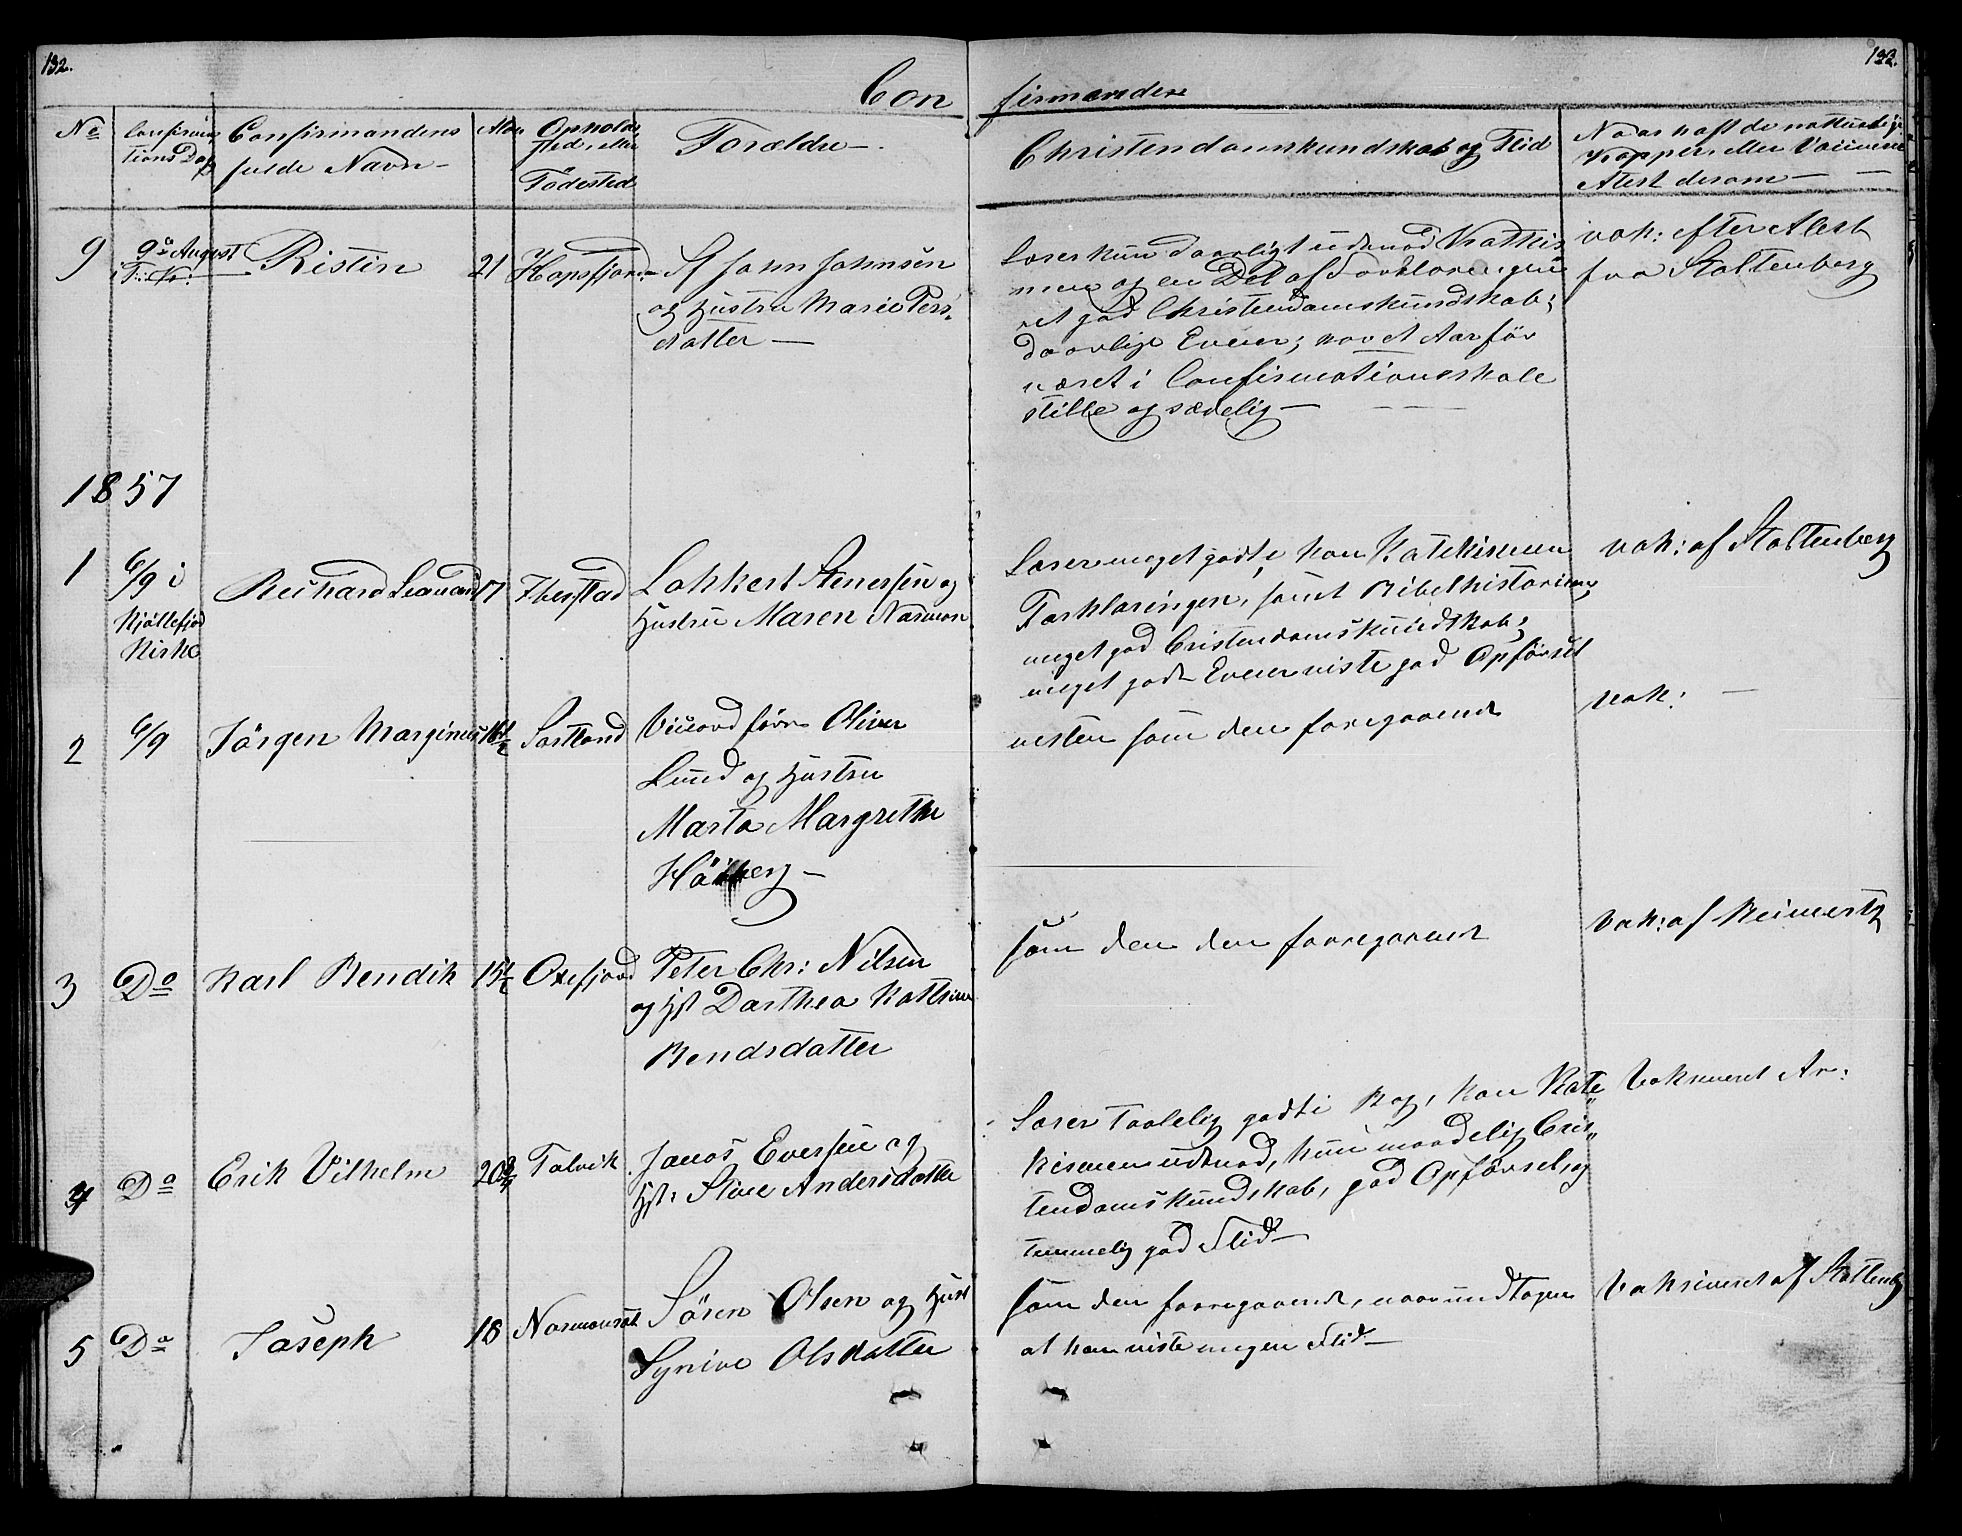 132.
133.
Con
firmandere
No
Confirma-
tions Dag
Confirmandens
fulde Navn
Alder
Opholds
sted eller
Födested
Forældre
Christendomskundskab og Flid
Naar haft de naturlige
Kopper eller Vaccine
Atest derom
9
9de August
Ristin
21
Hopsfjord
Sf John Johnsen
og Hustru Marie Pers-
datter
Læser kun daarligt udenad Kathis
men og en Del af Forklaringen
ret god Christendomskundskab;
daarlige Evner; har et Aar för
været i Confirmationsskole
stille og sædelig
vak: efter Atest
fra Stoltenberg
1857
1
6/9 i
Kjøllefjod
Kirke
Richard Leonard
17
Ibestad
Lokkert Stenersen og
Hustru Maren Norman
Læser meget godt, kan Katekismen
Forklaringen, samt Bibelhistorien,
meget god Cristendomskundskab;
meget gode Evner viste god Opförsel
vak: af Stoltenberg
2
6/9
Jörgen Marginus
16 1/2
Sortland
Oliver
Lund og Hustru
Marta Margrethe
Höiberg
næsten som den foregaaende
vak:
3
Do
Karl Bendik
15 1/2
Oxefjord
Peter Chr: Nilsen
og Hst Darthea Kathrine
Bendsdatter
som den den forregaaende
Vak: af Reimertz
4
Do
Erik Vilhelm
20 3/4
Talvik
Eversen og
Hst: Stine Andersdatter
Læser taalelig godt i Bog, kan Kate
kismen udenad, kun maadelig Cris-
tendomskundskab, god Opförsel og
temmelig god Flid
Vaksineret Ar:
5
Do
Joseph
18
Normanset
Sören Olsen og Hust
Synive Olsdatter
som den forregaaende, naar undtagen
at han viste megen Flid
Vaksineret af Stoltenbg